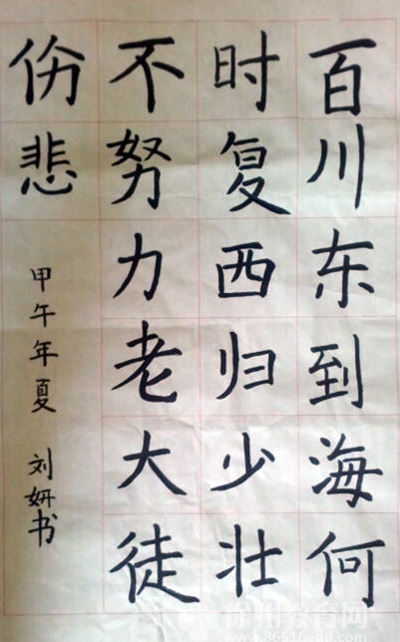 百川东到海何
时复西归少壮
不努力老大徒
伤悲
甲午年夏 刘妍书
徐州教育网
www.86516edu.com